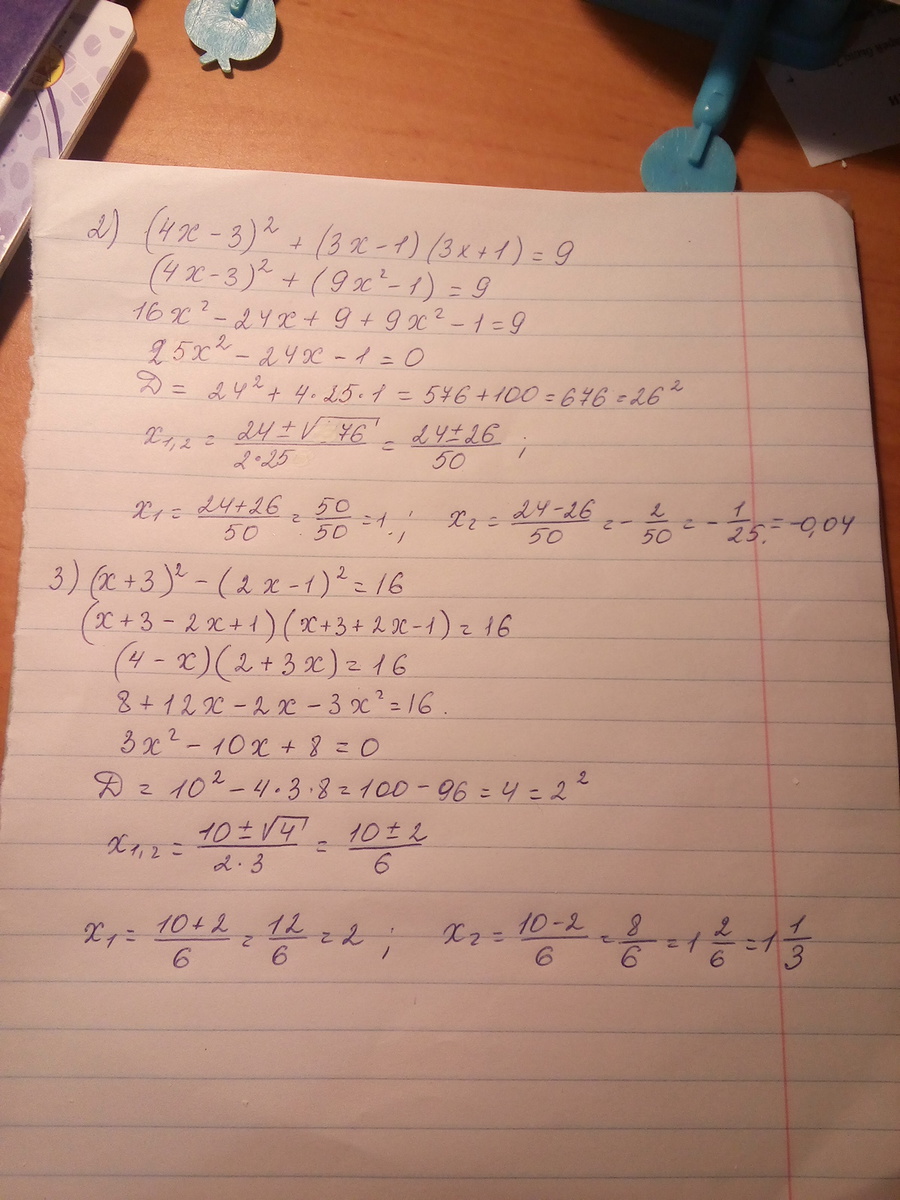 2) (4x - 3)² + (3x - 1)(3x + 1) = 9
(4x - 3)² + (9x² - 1) = 9
16x² - 24x + 9 + 9x² - 1 = 9
25x² - 24x - 1 = 0
D = 24² + 4·25·1 = 576 + 100 = 676 = 26²
x₁,₂ = (24 ± √ 76)/(2·25) = (24 ± 26)/50 ;
x₁ = (24+26)/50 = 50/50 = 1. ; x₂ = (24-26)/50 = - 2/50 = - 1/25. = -0,04
3) (x + 3)² - (2x - 1)² = 16
(x + 3 - 2x + 1)(x + 3 + 2x - 1) = 16
(4 - x)(2 + 3x) = 16
8 + 12x - 2x - 3x² = 16.
3x² - 10x + 8 = 0
D = 10² - 4·3·8 = 100 - 96 = 4 = 2²
x₁,₂ = (10 ± √4)/(2·3) = (10 ± 2)/6
x₁ = (10+2)/6 = 12/6 = 2 ; x₂ = (10-2)/6 = 8/6 = 1 2/6 = 1 1/3